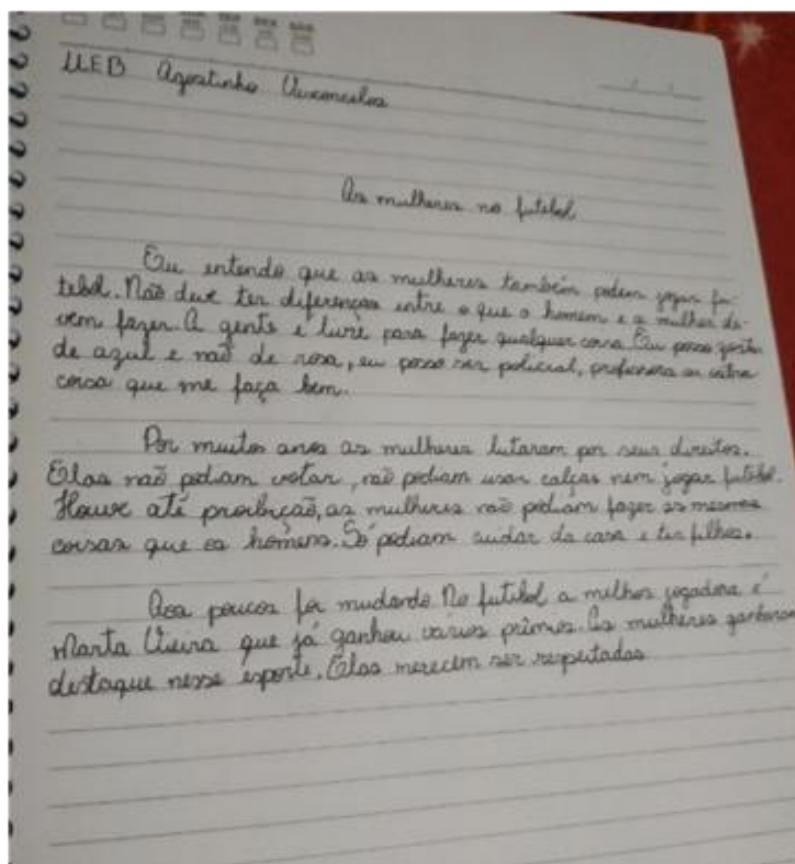 UEB Agostinho Vasconcelos
As mulheres no futebol
Eu entendo que as mulheres também podem jogar fu-
tebol. Não deve ter diferenças entre o que o homem e a mulher de-
vem fazer. A gente é livre para fazer qualquer coisa. Eu posso gostar
de azul e não de rosa, eu posso ser policial, professora ou outra
coisa que me faça bem.
Por muitos anos as mulheres lutaram por seus direitos.
Elas não podiam votar, não podiam usar calças nem jogar futebol.
Houve até proibição, as mulheres não podiam fazer as mesmas
coisas que os homens. Só podiam cuidar da casa e ter filhos.
Aos poucos foi mudando. No futebol a melhor jogadora é
Marta Vieira que já ganhou varios prêmios. As mulheres ganharam
destaque nesse esporte. Elas merecem ser respeitadas